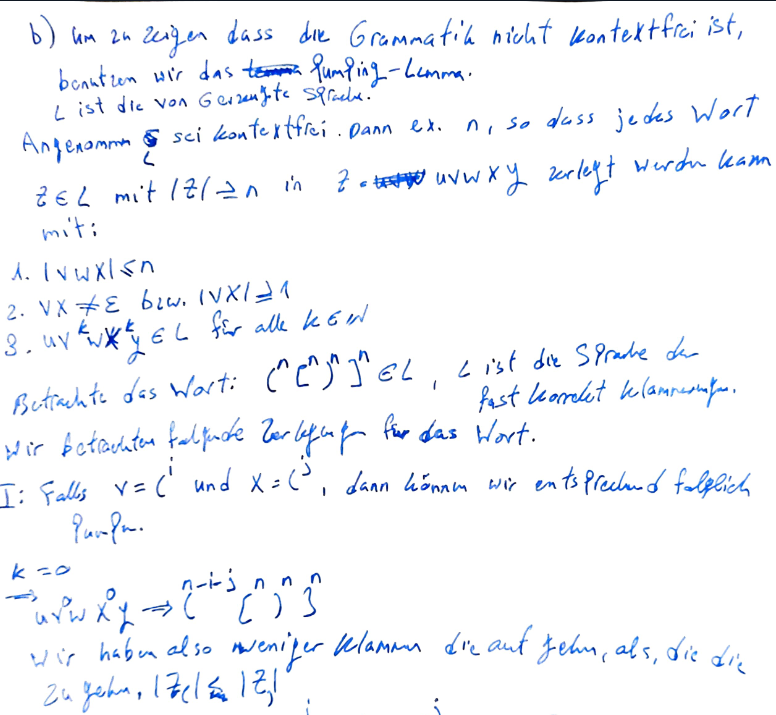 b) Um zu zeigen dass die Grammatik nicht kontextfrei ist,
benutzen wir das Pumping-Lemma.
L ist die von G erzeugte Sprache.
Angenommen L sei kontextfrei. Dann ex. n, so dass jedes Wort
z ∈ L mit |z| ≥ n in z = uvwxy zerlegt werden kann
mit:
1. |vwx| ≤ n
2. vx ≠ ε bzw. |vx| ≥ 1
3. uv^k wx^k y ∈ L für alle k ∈ ℕ
Betrachte das Wort: (^n [^n )^n ]^n ∈ L, L ist die Sprache der
fast korrekt Klammerungen.
Wir betrachten folgende Zerlegungen für das Wort.
I: Falls v = (^i und x = (^j, dann können wir entsprechend folglich
pumpen.
k = 0
⇒ uv^0 w x^0 y ⇒ (^{n-i-j} [^n )^n ]^n
Wir haben also weniger Klammern die auf gehn, als, die die
zu gehn,